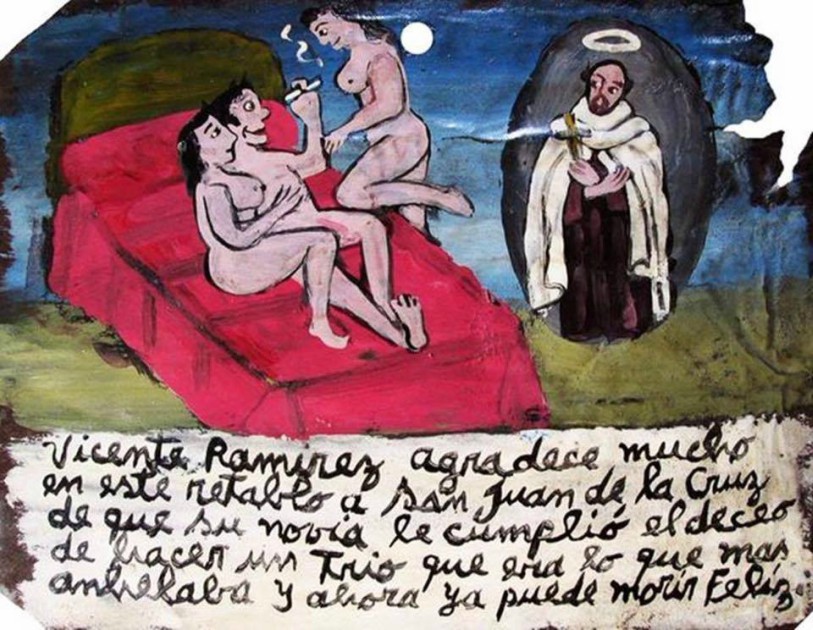 Vicente Ramirez agradece mucho
en este retablo a San Juan de la Cruz
de que su novia le cumplió el deceo
de hacer un Trio que era lo que mas
anhelaba y ahora ya puede morir Feliz.